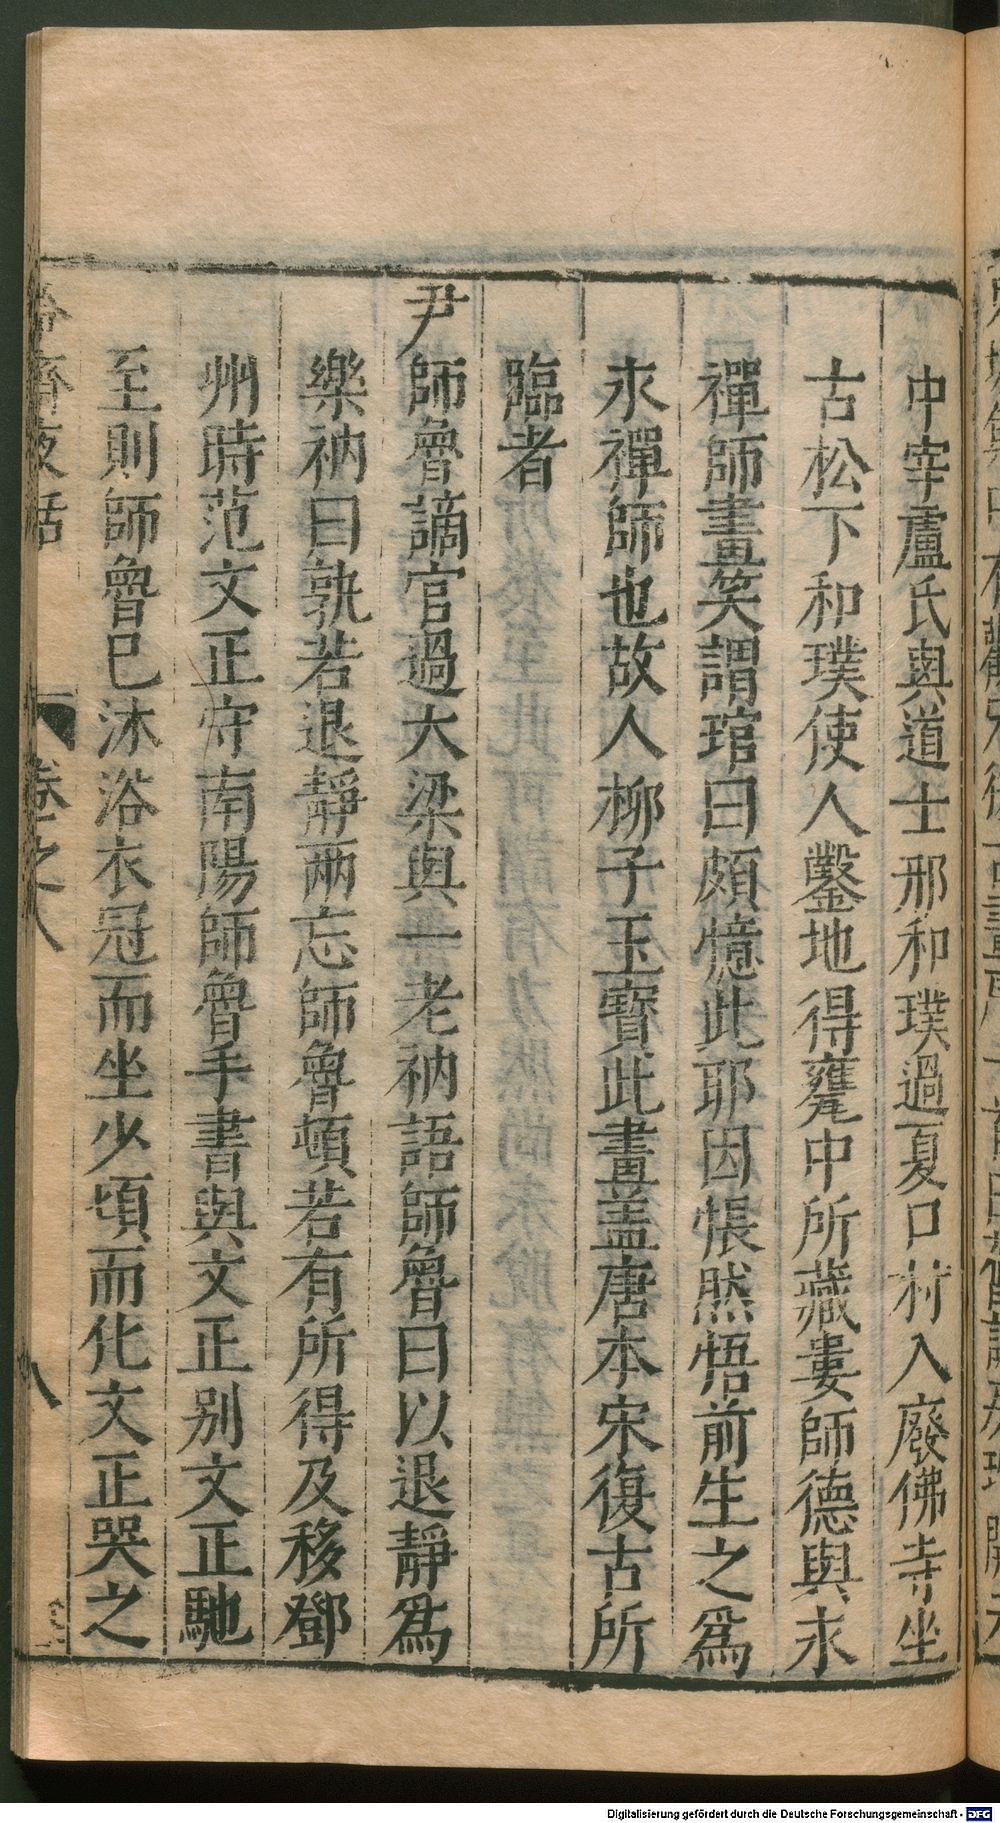 中宰廬氏與道士邢和璞過夏口村入廢佛寺坐
古松下和璞使人鑿地得甕中所藏婁師德與永
禪師畫笑謂琯曰頗憶此耶因悵然悟前生之爲
永禪師也故人柳子玉寶此畫盖唐本宋復古所
臨者
尹師魯謫官過大梁與一老衲語師魯曰以退靜爲
樂衲曰孰若退靜兩忘師魯頓若有所得及移鄧
州時范文正守南陽師魯手書與文正别文正馳
至則師魯已沐浴衣冠而坐少頃而化文正哭之
齋夜話
卷之八
八
Digitalisierung gefördert durch die Deutsche Forschungsgemeinschaft - DFG